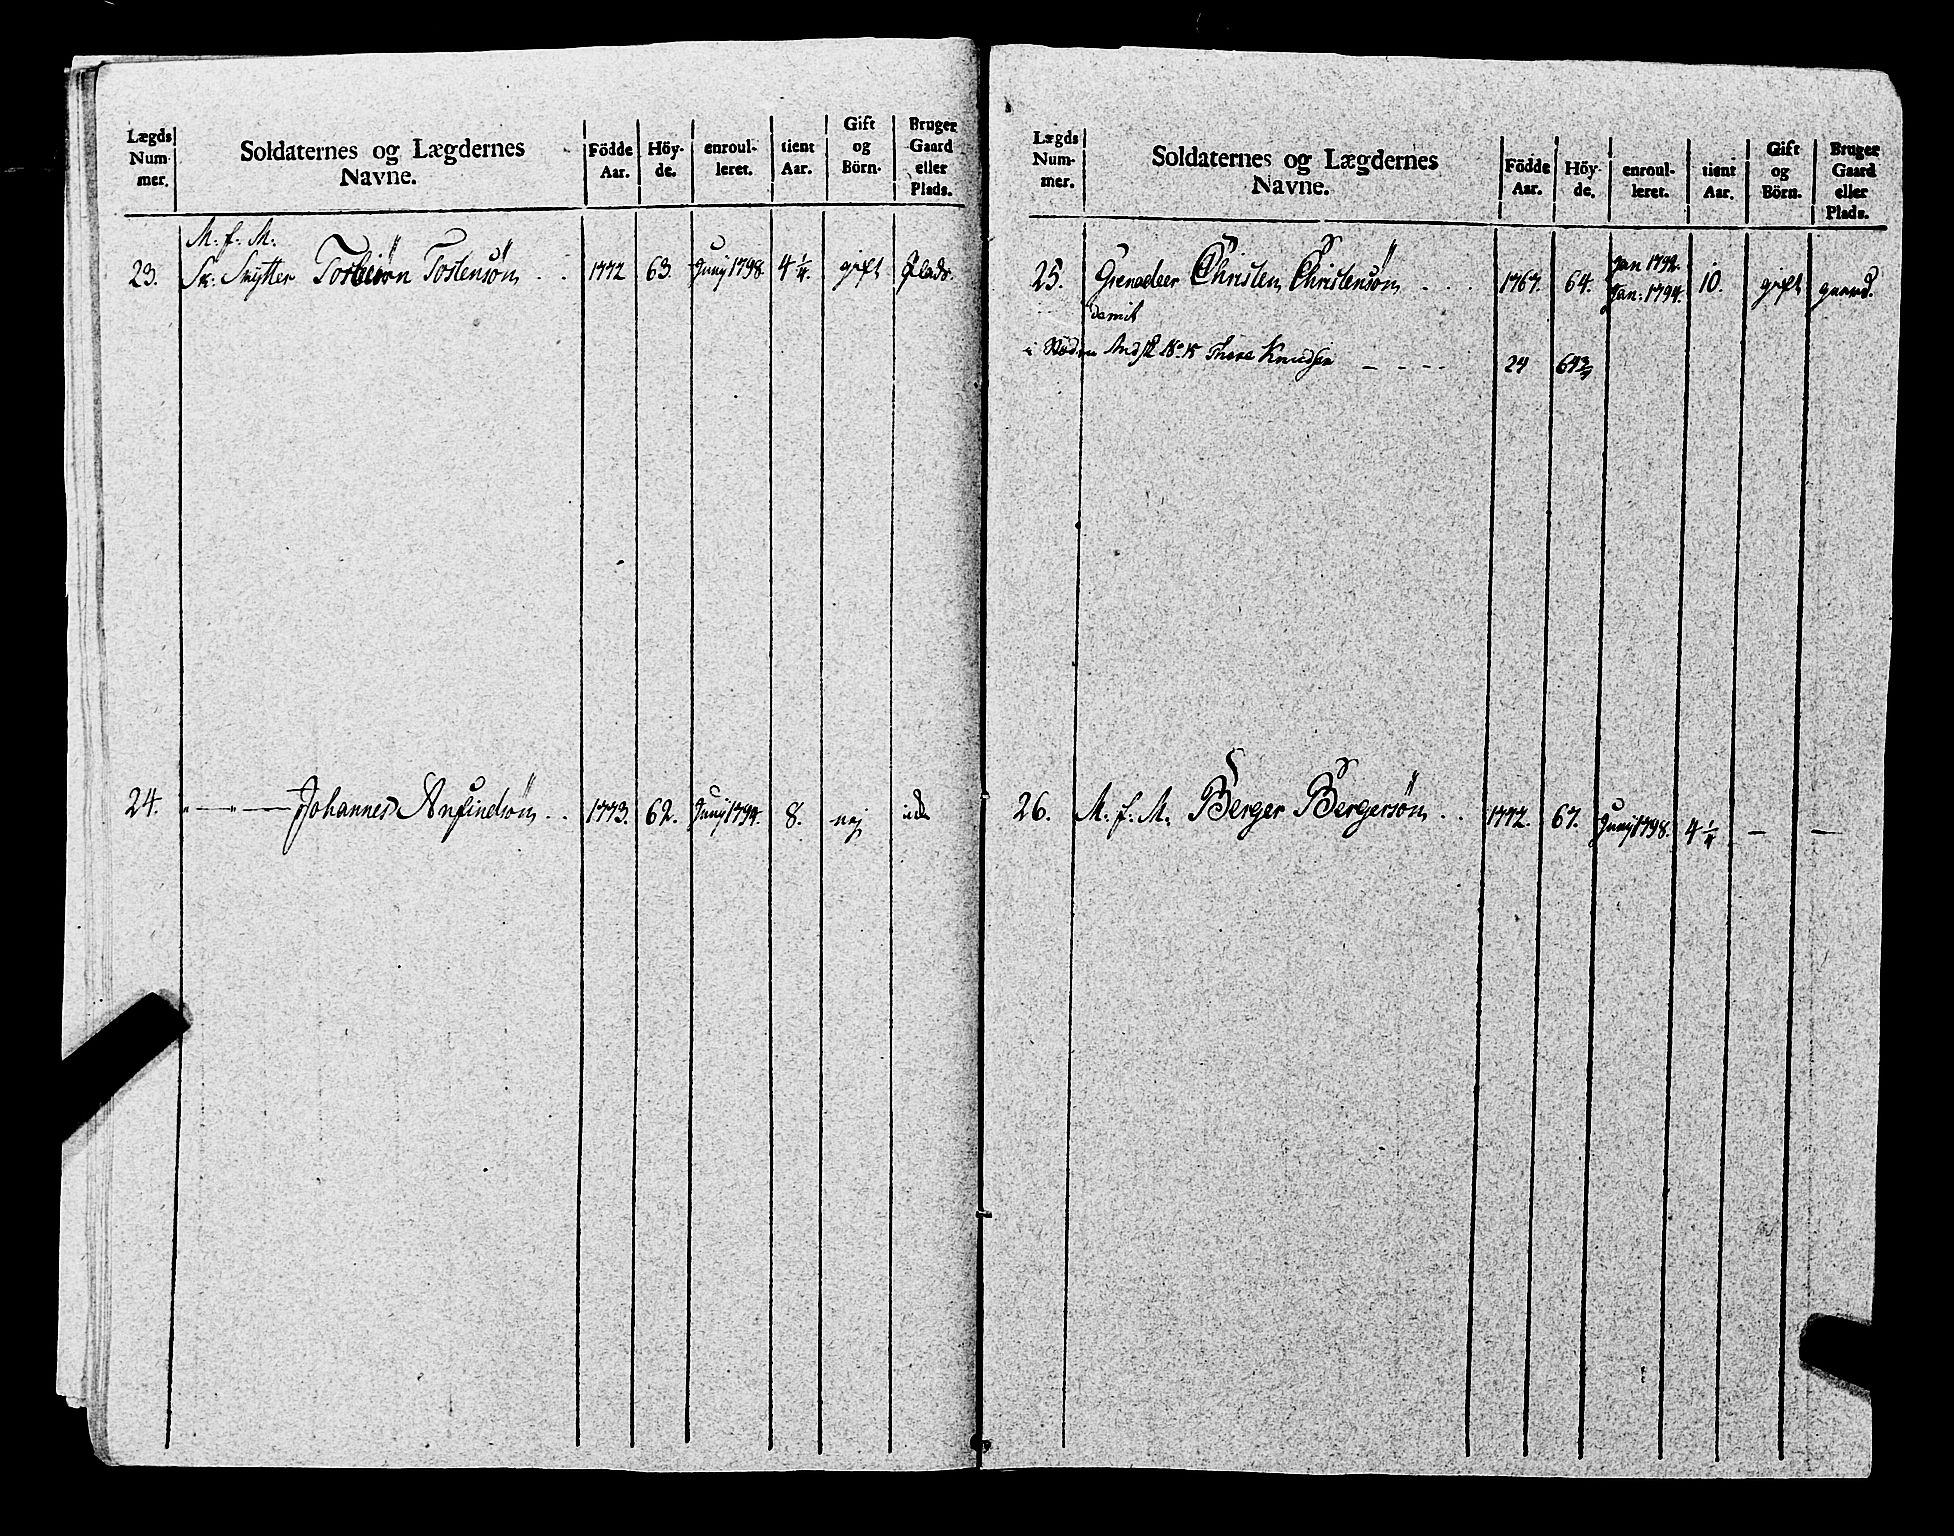 Lægds Num- mer. | Soldaternes og Lægdernes Navne. | Födde Aar. | Höy- de. | enroul- leret. | tient Aar. | Gift og Börn. | Bruger Gaard eller Plads.
M. f. M.
23. Sk: Skytter Torbiörn Tostensön . . 1772 63. Junij 1798. 4 1/4. gift Plads.
24. " — " — Johannes Anfindsön . . 1773. 62. Junij 1794. 8. nej ids
Lægds Num- mer. | Soldaternes og Lægdernes Navne. | Födde Aar. | Höy- de. | enroul- leret. | tient Aar. | Gift og Börn. | Bruger Gaard eller Plads.
Jan 1792.
25. Grenadeer Christen Christensön . . . . 1767. 64. Jan: 1794. 10. gift gaard.
demit
Knudsen — - - - 24 64 3/4
26. M. f. M. Berger Bergersön . . 1772. 67. Junij 1798. 4 1/4 — —